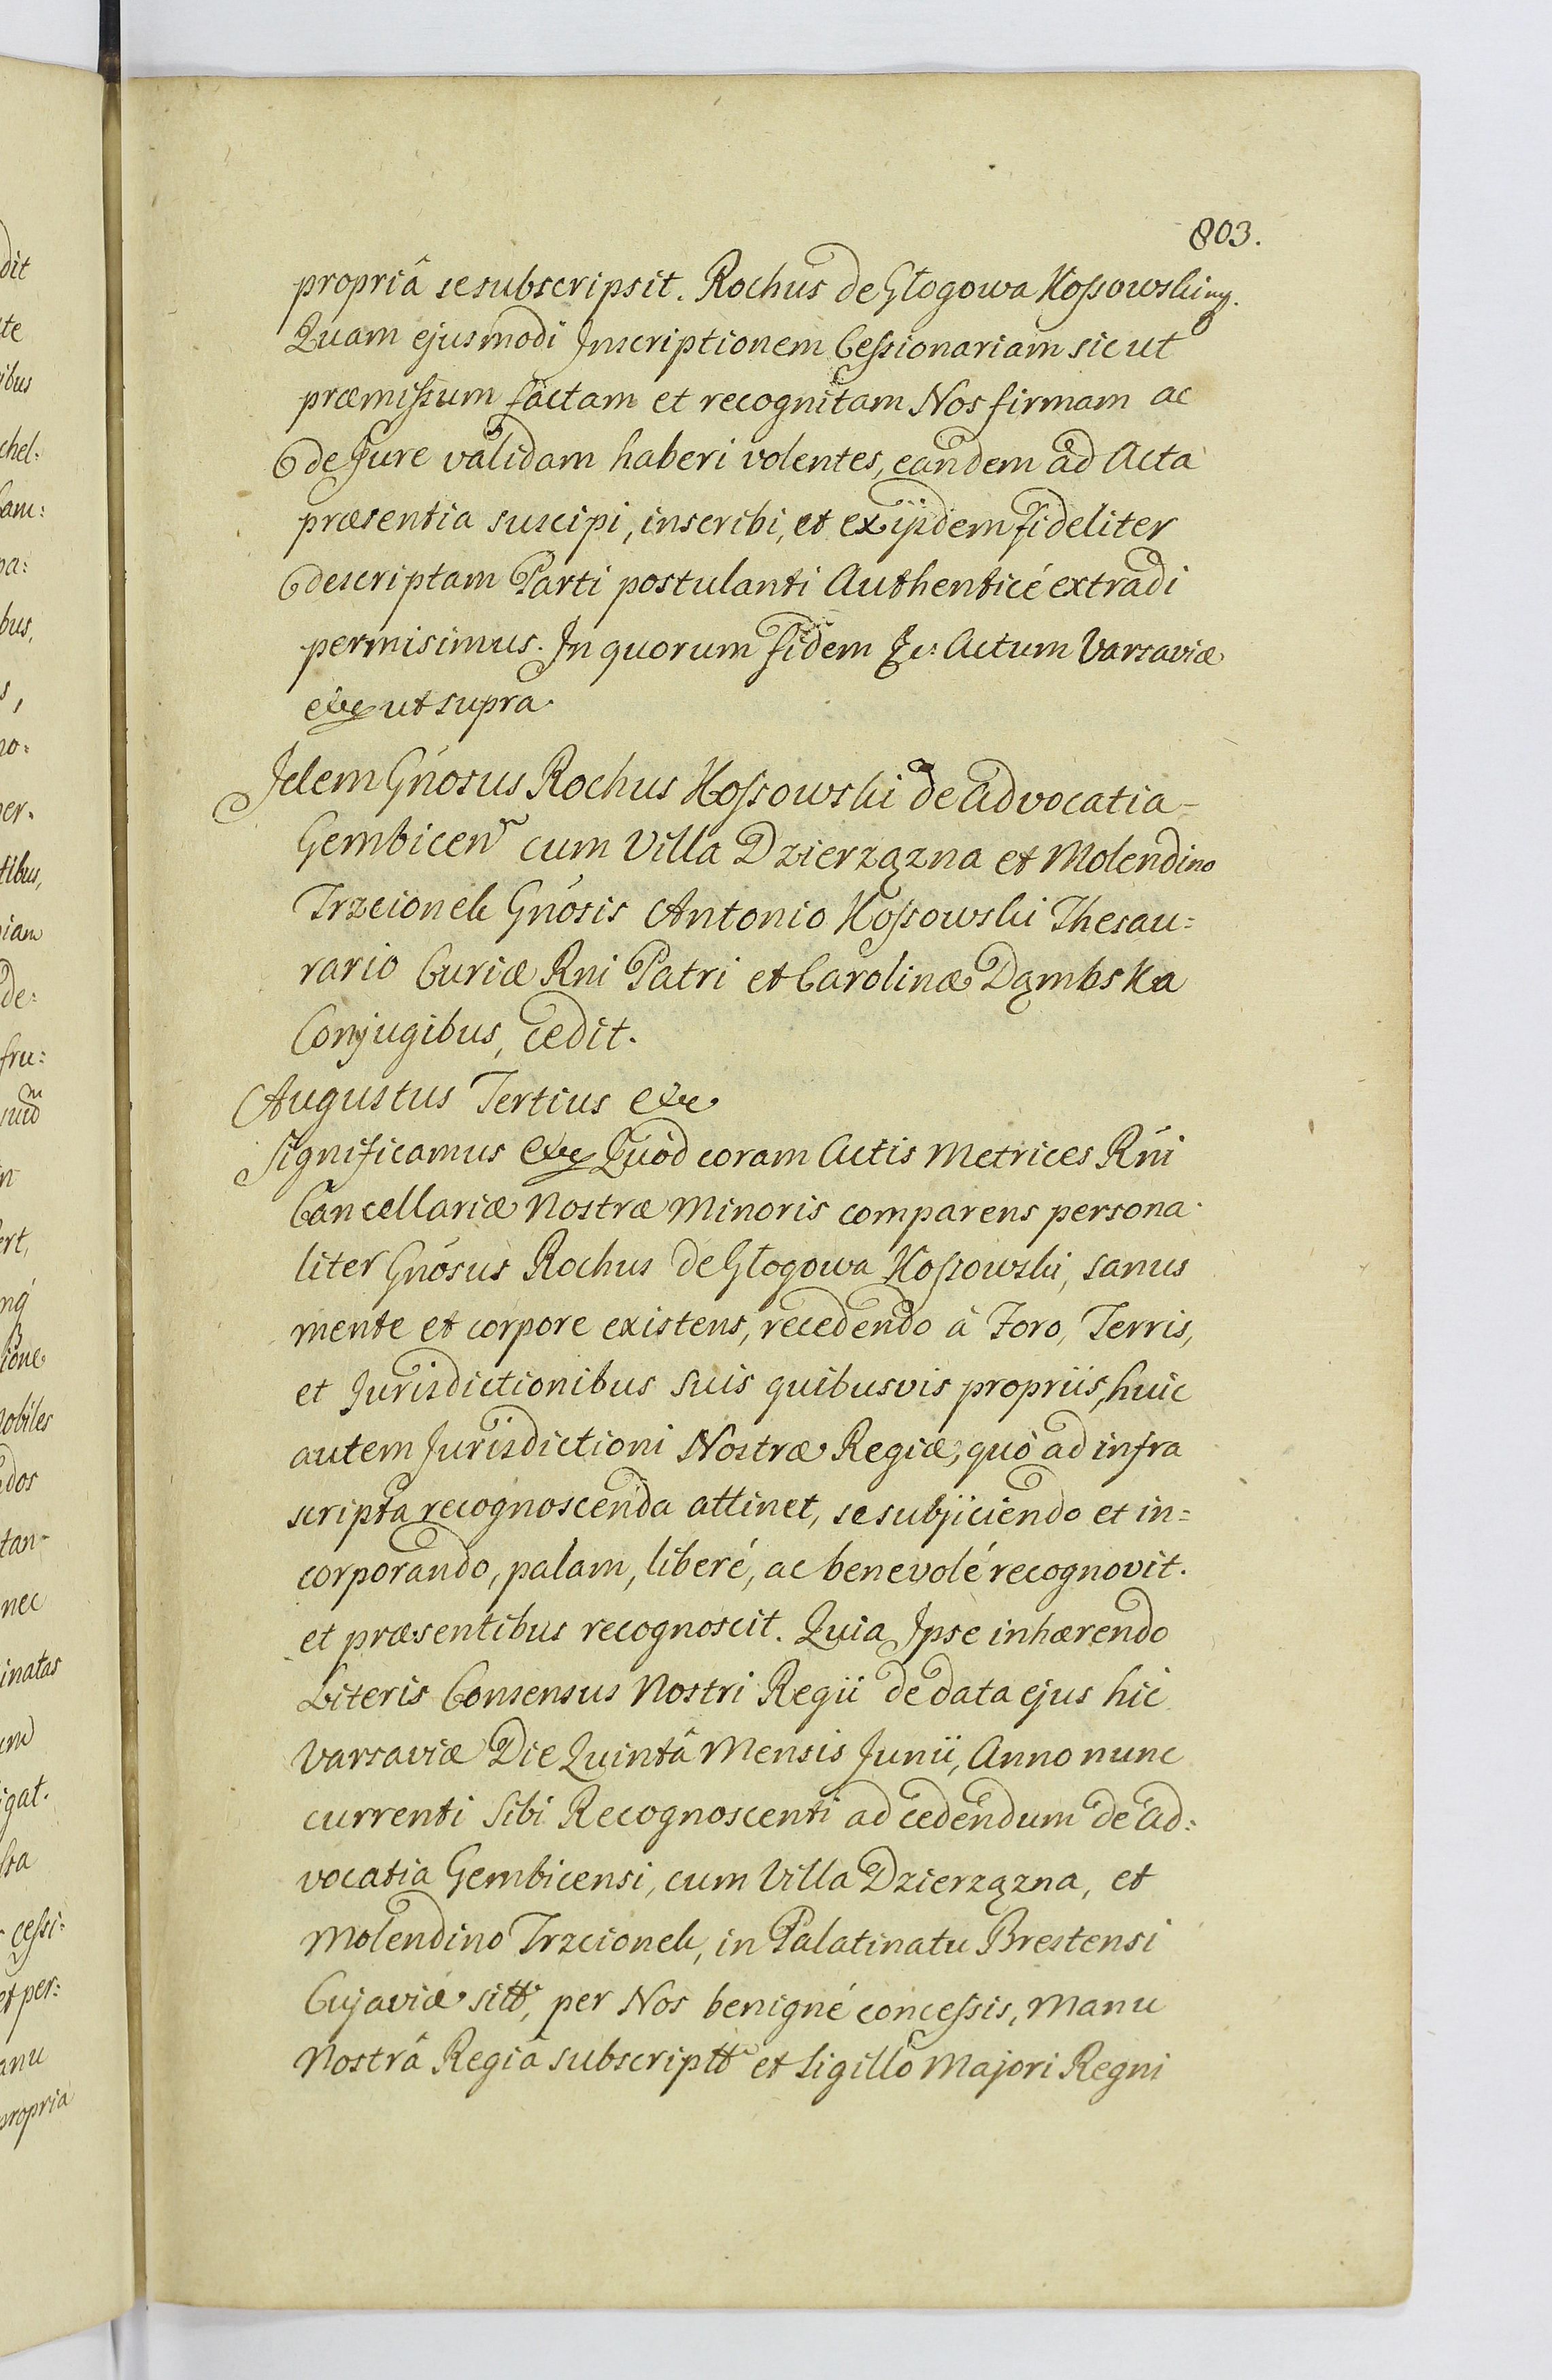 803.
propriâ se subscripsit. Rochus de Głogowa Kossowski mp.
Quam ejusmodi Inscriptionem Cessionariam sic ut
præmissum factam et recognitam Nos firmam ac
de Jure validam haberi volentes, eandem ad Acta
præsentia suscipi, inscribi, et ex ijsdem fideliter
descriptam Parti postulanti Authenticé extradi
permisimus. In quorum fidem &c: Actum Varsaviæ
etc ut supra.
Idem Gnosus Rochus Kossowski de Advocatia
Gembicen cum Villa Dzierzązna et Molendino
Trzcionek Gnósis Antonio Kossowski Thesau=
rario Curiæ Rni Patri et Carolinæ Dąmbska
Conjugibus, cedit.
Augustus Tertius etc
Significamus etc Quod coram Actis Metrices Rni
Cancellariæ Nostræ Minoris comparens persona
liter Gnósus Rochus de Głogowa Kossowski, sanus
mente et corpore existens, recedendo â Foro, Terris,
et Jurisdictionibus suis quibusvis propriis, huic
autem Jurisdictioni Nostræ Regiæ, quò ad infra
scripta recognoscenda attinet, se subjiciendo et in=
corporando, palam, liberé, ac benevolé recognovit.
et præsentibus recognoscit. Quia Ipse inhærendo
Literis Consensus Nostri Regii de data ejus hic
Varsaviæ Die Quintâ Mensis Junii, Anno nunc
currenti Sibi Recognoscenti ad cedendum de Ad=
vocatia Gembicensi, cum Villa Dzierzązna, et
Molendino Trzcionek, in Palatinatu Brestensi
Cujaviæ sitt, per Nos benigné concessis, Manu
Nostrâ Regiâ subscriptt et Sigillo Majori Regni